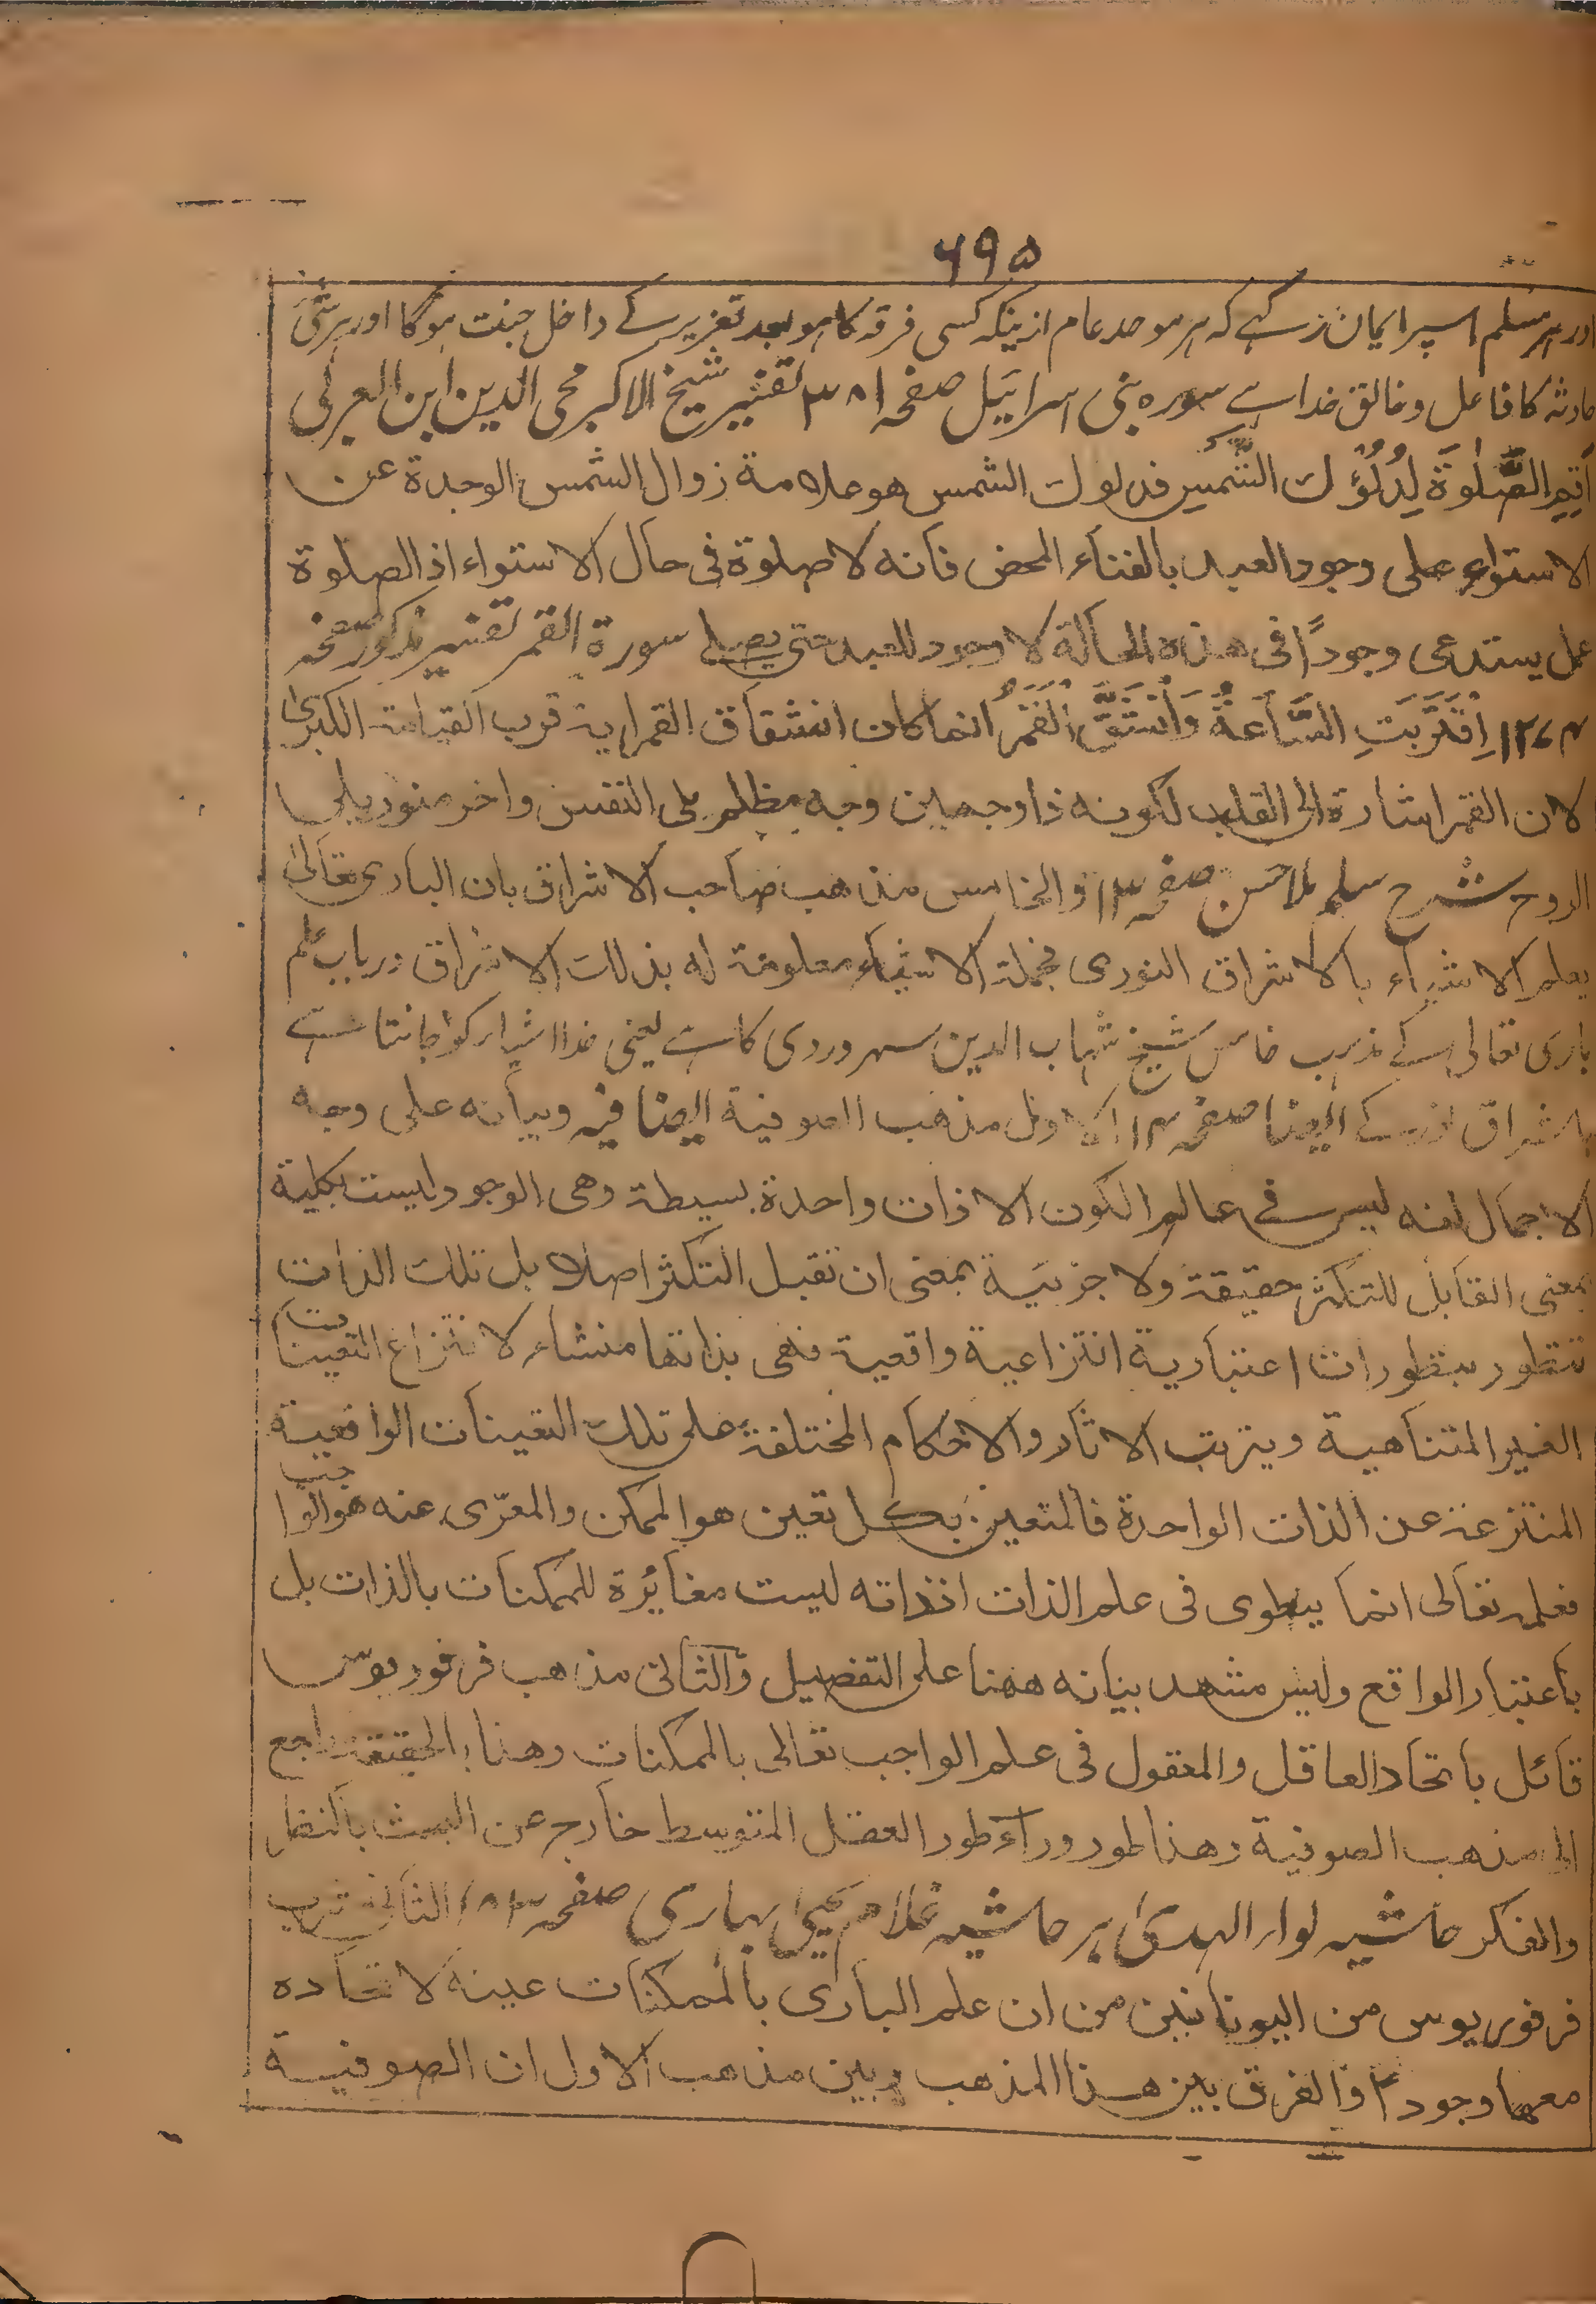 ۶۹۵
اور ہر مسلم اسپر ایمان رکہے کہ ہر موحد عام ازینکہ کسی فرقہ کا ہو بعد تعزیر کے داخل جنت ہوگا اور ہر شیٔ
حادثہ کا فاعل و خالق خدا ہے سورہ بنی اسرائیل صفحہ ۳۸۱ تفسیر شیخ الاکبر محی الدین ابن العربی
اَقِمِ الصَّلٰوةَ لِدُلُوْكِ الشَّمْسِ فدلوك الشمس هو علامة زوال الشمس الوحدة عن
الاستواء على وجود العبد بالفناء المحض فانه لا صلوة فى حال الاستواء اذ الصلوة
عمل يستدعى وجودًا فى هذه الحالة لا وجود للعبد حتى يصلى سورة القمر تفسیر مذکور صفحہ
۱۲۷۴ اِقْتَرَبَتِ السَّاعَةُ وَانْشَقَّ الْقَمَرُ انما كان انشقاق القمر اية قرب القيامة الكبرىٰ
لان القمر اشارة الى القلب لكونه ذا وجهين وجه مظلم يلى النفس واخر منور يلى
الروح شرح سلم ملا حسن صفحہ ۱۳ والخامس مذهب صاحب الاشراق بان البارى تعالىٰ
يعلم الاشياء بالاشراق النورى فجملة الاشياء معلومة له بذلك الاشراق در باب علم
باری تعالی کے مذہب خامس شیخ شہاب الدین سہروردی کا ہے یعنی خدا اشیار کو جانتا ہے
باشراق نور کے ایضا صفحہ ۱۳ الاول مذهب الصوفية ايضا فيه وبيانه على وجه
الاجمال انه ليس فى عالم الكون الا ذات واحدة بسيطة وهى الوجود وليست بكلية
بمعنى القابل للتكثر حقيقة ولا جزئية بمعنى ان تقبل التكثر اصلا بل تلك الذات
تتطور بتطورات اعتبارية انتزاعية واقعية فهى بذاتها منشاء لانتزاع التعينات
الغير المتناهية ويترتب الاثار والاحكام المختلفة على تلك التعينات الواقعية
المنتزعة عن الذات الواحدة فالمتعين بكل تعين هو الممكن والمعرّى عنه هو الواجب
فعلمه تعالى انما ينطوى فى علم الذات اذ ذاته ليست مغائرة للممكنات بالذات بل
باعتبار الواقع وليس مشهد بيانه ههنا على التفصيل والثانى مذهب فرفوريوس
قائل باتحاد العاقل والمعقول فى علم الواجب تعالى بالممكنات وهذا بالحقيقة راجع
الى مذهب الصوفية وهذا طور وراء طور العقل المتوسط خارج عن البحث بالنظر
والفكر حاشیہ لوار الہدیٰ بر حاشیہ غلام یحییٰ بہاری صفحہ الثانى مذهب
فرفوريوس من اليونانيين من ان علم البارى بالممكنات عينه لاتحاده
معها وجودا والفرق بين هذا المذهب وبين مذهب الاول ان الصوفية